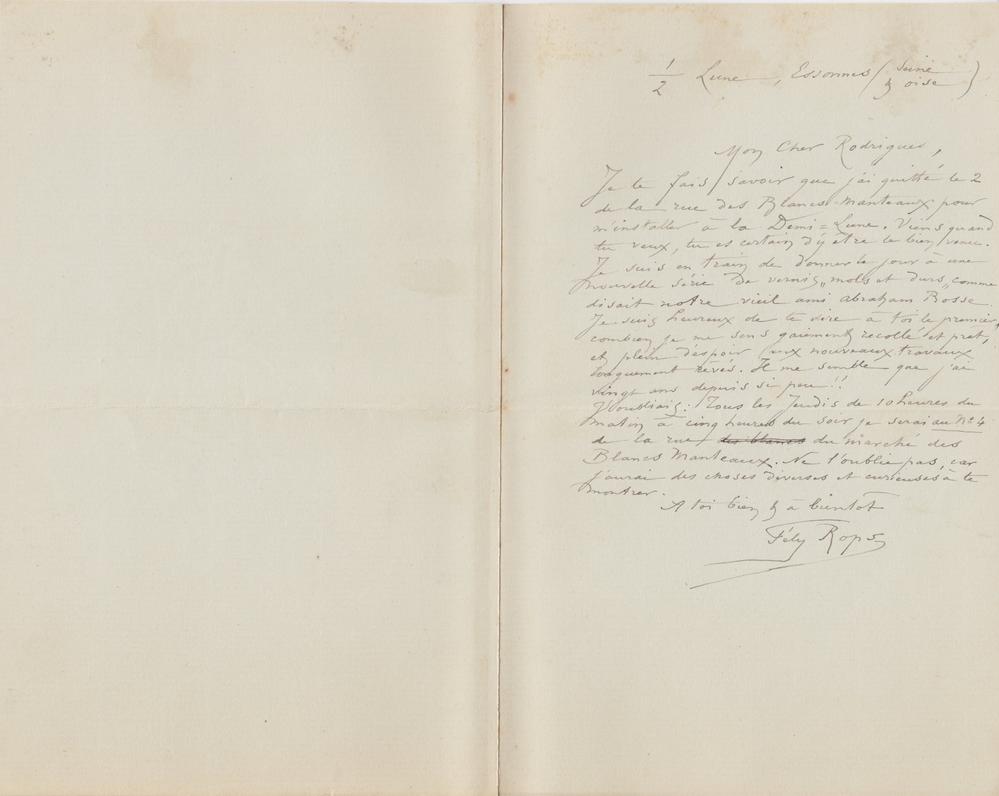 1/2 Lune, Essonnes (Seine & oise)
Mon Cher Rodrigues,
Je te fais savoir que j'ai quitté le 2
de la rue des Blancs-Manteaux pour
m'installer à la Demi=Lune. Viens quand
tu veux, tu es certain d'y être le bien venu.
Je suis en train de donner le jour à une
nouvelle série de vernis „mols et durs„ comme
disait notre vieil ami Abraham Bosse.
Je suis heureux de te dire à toi le premier,
combien je me sens gaiement recollé et prêt,
et plein d'espoir aux nouveaux travaux
longuement rêvés. Il me semble que j'ai
vingt ans depuis si peu!!
J'oubliais: Tous les Jeudis de 10 heures du
matin à cinq heures du soir je serai au No 4
de la rue des blancs du marché des
Blancs Manteaux. Ne l'oublie pas, car
j'aurai des choses diverses et curieuses à te
montrer.
A toi bien & à bientôt
Fély Rops